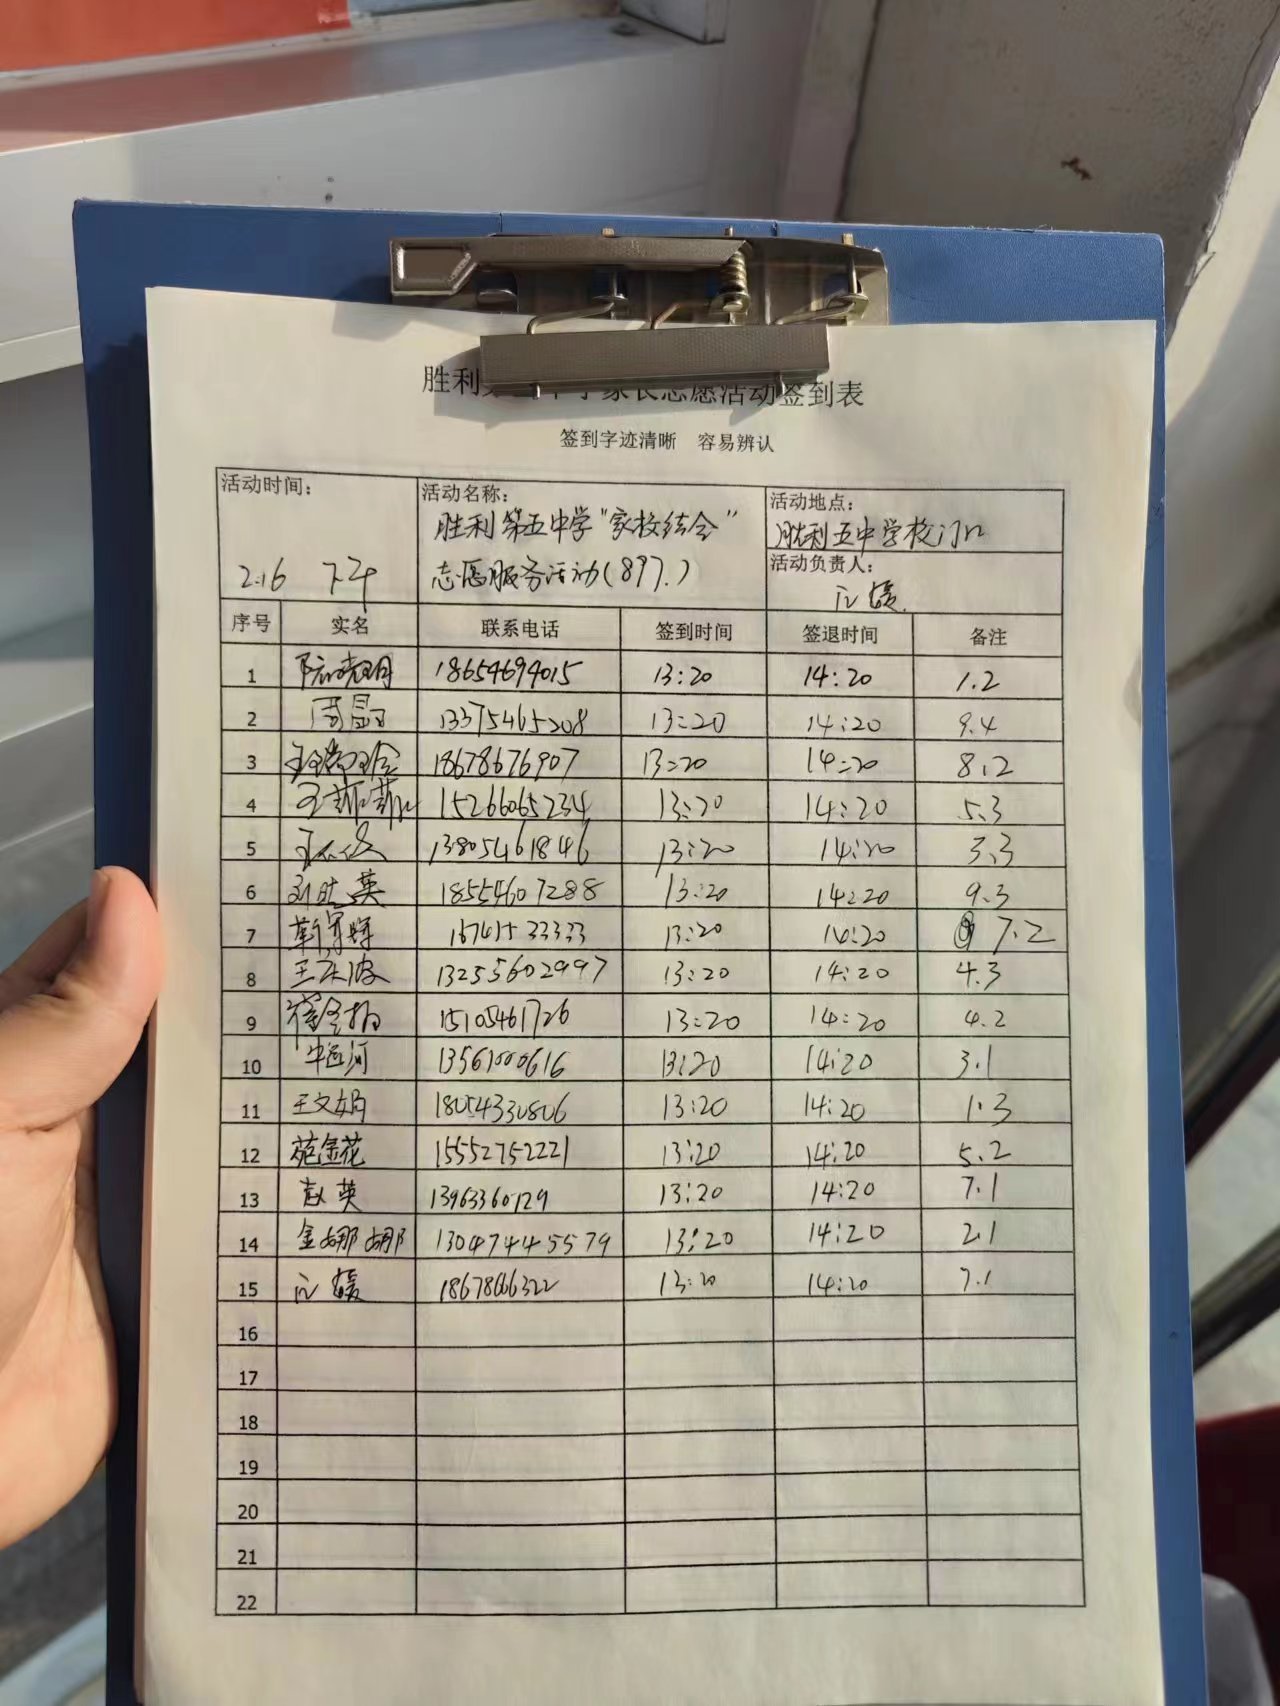 胜利 家长志愿活动签到表
签到字迹清晰 容易辨认
活动时间: 2.16 下午
活动名称: 胜利第五中学"家校结合"
志愿服务活动(897.)
活动地点: 胜利五中学校门口
活动负责人:
序号 实名 联系电话 签到时间 签退时间 备注
1 18654694015 13:20 14:20 1.2
2 13375465208 13:20 14:20 9.4
3 18678676907 13:20 14:20 8.2
4 王菲菲 15266065234 13:20 14:20 5.3
5 13805461846 13:20 14:20 3.3
6 18554607288 13:20 14:20 9.3
7 13:20 14:20 7.2
8 13255602997 13:20 14:20 4.3
9 15105461726 13:20 14:20 4.2
10 13561000616 13:20 14:20 3.1
11 王文娟 18054330806 13:20 14:20 1.3
12 苑金花 15552752221 13:20 14:20 5.2
13 赵英 13:20 14:20 7.1
14 金娜娜 13047445579 13:20 14:20 2.1
15 18678666322 13:20 14:20 7.1
16
17
18
19
20
21
22